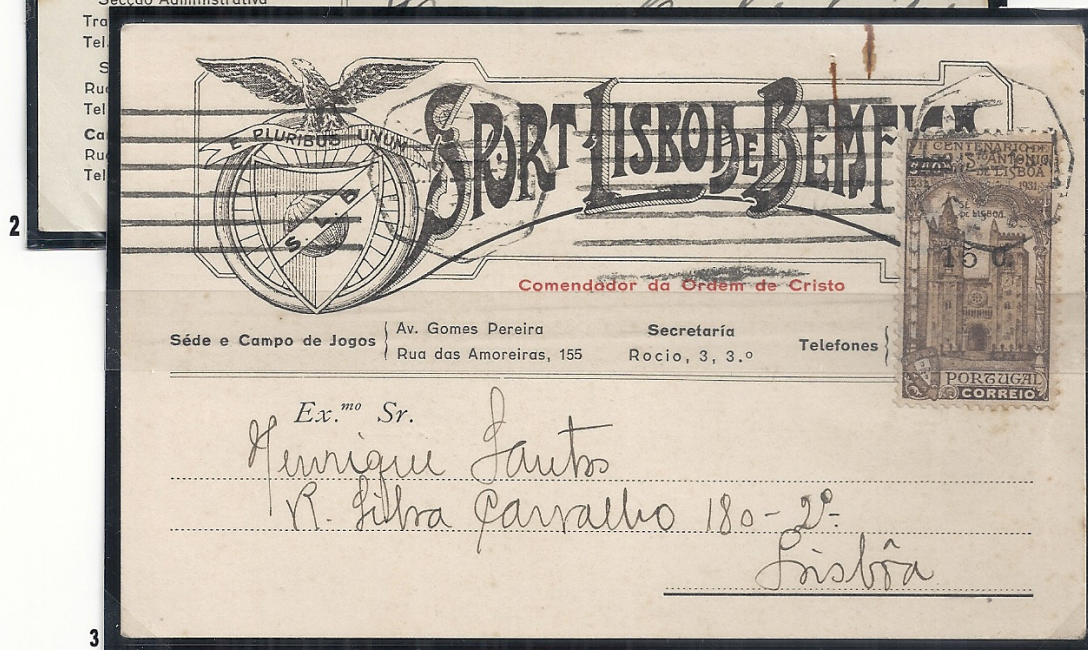 Secção Administrativa
Tra
Tel.
S
Ru
Tel
Ca
Ru
Tel
2
E PLURIBUS UNUM
SLB
SPORT LISBOA E BEMFICA
Comendador da Ordem de Cristo
Séde e Campo de Jogos
Av. Gomes Pereira
Rua das Amoreiras, 155
Secretaría
Rocio, 3, 3.º
Telefones
CENTENARIO DE
Sto ANTONIO
DE LISBOA
1931
SÉ
DE LISBOA
15 C.
PORTUGAL
CORREIO
Ex.mo Sr.
Henrique Santos
R. Silva Carvalho 180-2º-
Lisbôa
3